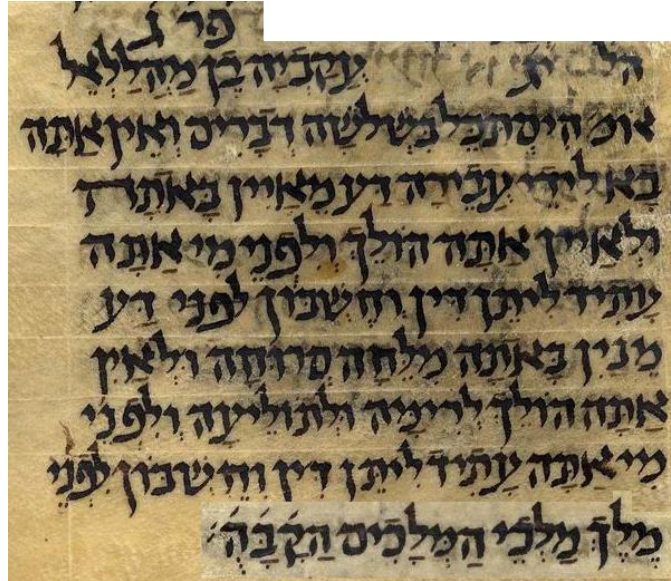 פר ג
הל עֲקַבְיָה בֶן מַהֲלַלְאֵל
אומ הִיסְתַּכֵּל בִּשְׁלֹשָׁה דְבָרִים וְאֵין אַתָּה
בָּא לִידֵי עֲבֵירָה דַּע מֵאַיִין בָּאתָה
וּלְאַיִין אַתָּה הוֹלֵךְ וְלִפְנֵי מִי אַתָּה
עָתִיד לִיתֵּן דִּין וְחֶשְׁבּוֹן לִפְנֵי דַּע
מנין בָּאתָה מִלֵּחָה סְרוּחָה וּלְאַיִן
אַתָּה הוֹלֵךְ לְרִימָּה וּלְתוֹלֵיעָה וְלִפְנֵי
מִי אַתָּה עָתִיד לִיתֵּן דִּין וְחֶשְׁבּוֹן לִפְנֵי
מֶלֶךְ מַלְכֵי הַמְּלָכִים הַקָּבָּה